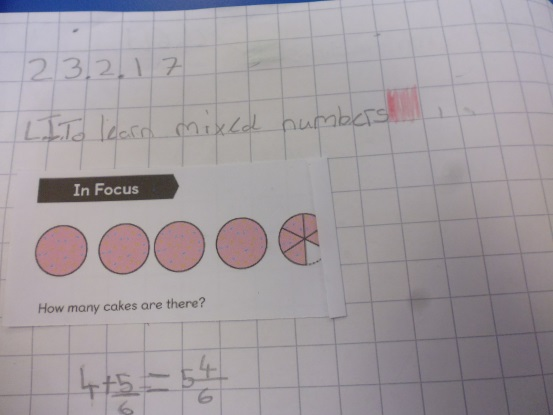 23.2.17
LI To learn mixed numbers
In Focus
How many cakes are there?
4+5/6 = 5 4/6